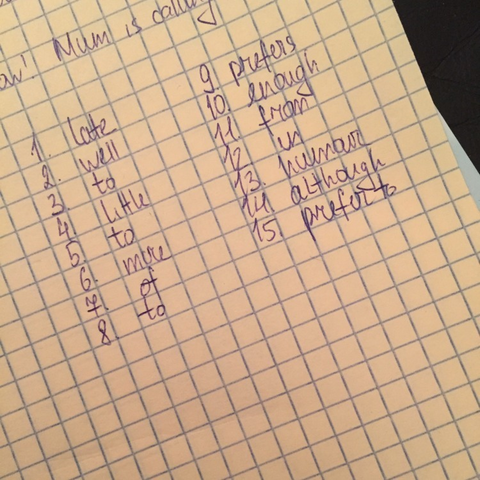 Mum is calling
1. late
2. well
3. to
4. little
5. to
6. more
7. of
8. to
9. prefers
10. enough
11. from
12. in
13. human
14. although
15. prefer to